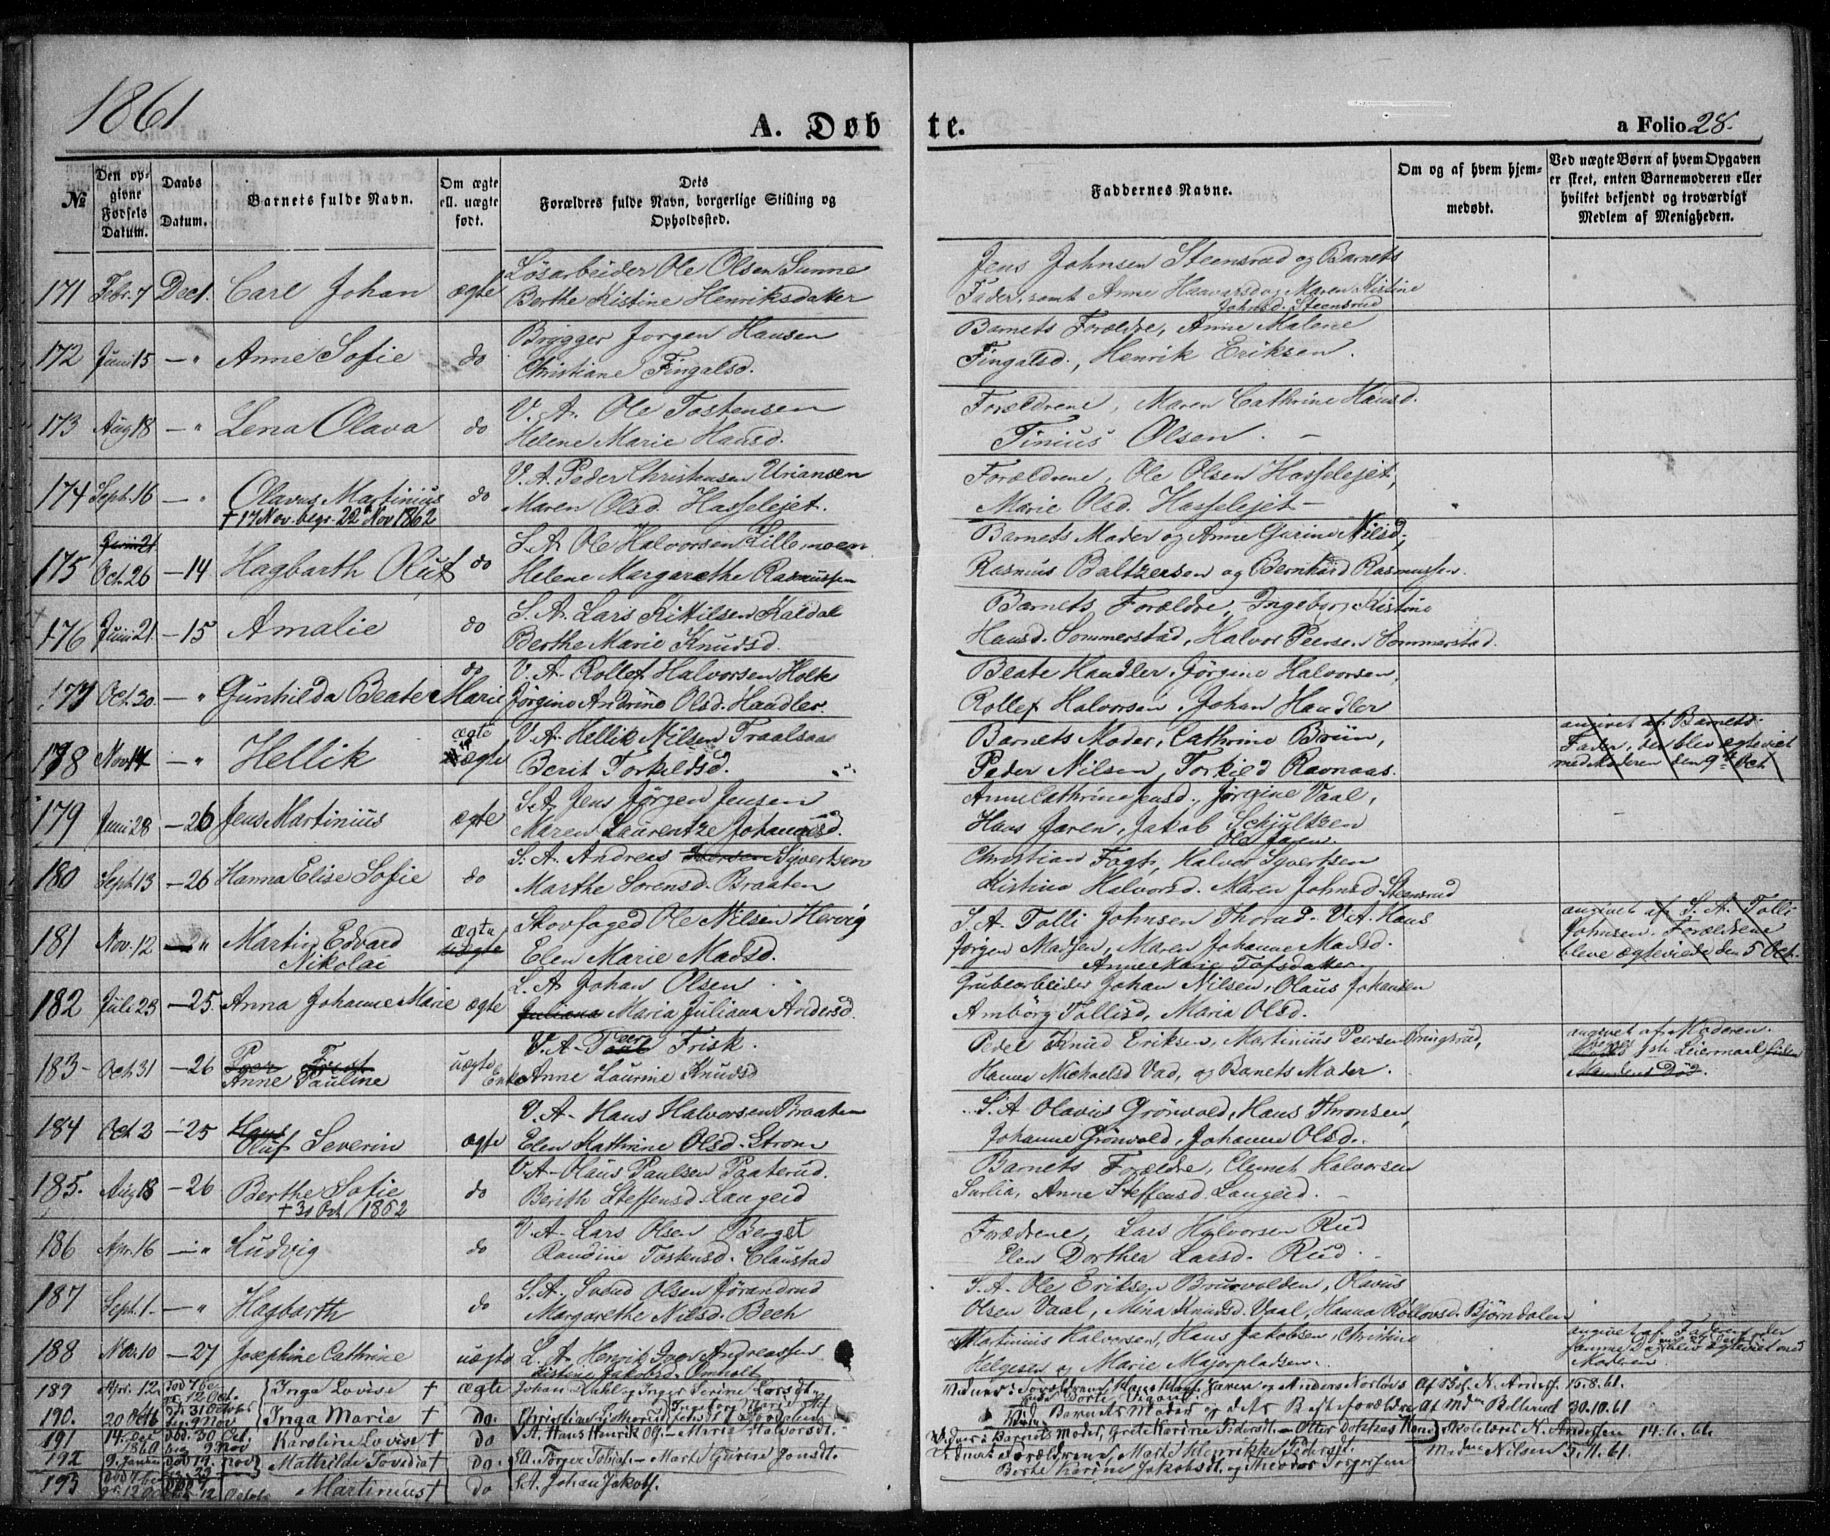 1861
A. Døbte.
a Folio 28.
№
Den opgivne Fødsels Datum.
Daabs Datum.
Barnets fulde Navn.
Om ægte ell. uægte født.
Dets Forældres fulde Navn, borgerlige Stilling og Opholdssted.
Faddernes Navne.
Om og af hvem hjemmedøbt.
Ved uægte Børn af hvem Opgaven er skeet, enten Barnemoderen eller hvilket bekjendt og troværdigt Medlem af Menigheden.
171 Febr. 7 Dec 1. Carl Johan ægte Løsarbeider Ole Olsen Sunne
Berthe Kistine Henriksdatter
Jens Johnsen Steensrud og Barnets
Fader, samt Anne Haavarsd og Maren Kistine
Johnsd. Steensrud
172 Juni 15 — " Anne Sofie do Brygger Jørgen Hansen
Christiane Fingalsd.
Barnets Forældre, Anne Malene
Fingalsd., Henrik Eriksen.
173 Aug 18 — " Lena Olava do V. A. Ole Tostensen
Helene Marie Hansd.
Forældrene, Maren Cathrine Hansd.
Tinius Olsen. —
174 Sept. 16 — " Olavus Martinius do V. A. Peder Christensen Uriansen
† 17 Nov. begr. 22 Nov 1862 Maren Olsd. Hasselejet.
Forældrene, Ole Olsen Hasselejet,
Marie Olsd. Hasselejet —
175 Oct. 26 — 14 Hagbarth Oluf do S. A. Ole Halvorsen Lillemoen
Helene Margarethe Rasmussen
Barnets Moder og Anne Gurine Nilsd,
Rasmus Baltzersen og Bernhard Rasmussen.
176 Juni 21. — 15 Amalie do S. A. Lars Kittilsen Kaldal
Berthe Marie Knudsd.
Barnets Forældre, Ingeborg Kistine
Hansd. Sommerstad, Halvor Peersen Sommerstad.
177 Oct. 30. — " Gunhilda Beate Marie do V. A. Rollef Halvorsen Holte
Jørgine Andrine Olsd. Handler.
Beate Handler, Jørgine Halvorsen,
Rollef Halvorsen, Johan Handler
178 Nov 14 — " Hellik ægte V. A. Hellik Nilsen Traalsaas
uægte Berit Torkildsd.
Barnets Moder, Cathrine Bruun,
Peder Nilsen, Torkild Ravnaas.
angivet af Barnets
Fader, der blev ægteviet
med Moderen den 9de Oct.
179 Juni 28 — 26 Jens Martinius ægte S. A. Jens Jørgen Jensen
Maren Laurentze Johannesd.
Anne Cathrine Jensd., Jørgine Vaal,
Hans Jaren, Jakob Schjultzen
180 Sept. 13 — 26 Hanna Elise Sofie do S. A. Andreas Iversen Syvertsen
Marthe Sorensd. Braaten
Christian Fogt, Halvor Syvertsen
Kistine Halvorsd. Maren Johnsd. Steensrud
181 Nov. 12 — " Martin Edvard
Nikolai ægte
uægte Skovfoged Ole Nilsen Hervig
Elen Marie Madsd.
S. A. Tolli Johnsen Thorud. V. A. Hans
Jørgen Madsen, Maren Johanne Madsd.
Anne Marie Tofsdatter.
angivet af S. A. Tolli
Johnsen. Forældrene
bleve ægteviede den 5 Oct.
182 Juli 23 — 25. Anna Johanne Marie ægte L. A. Johan Olsen
Juliana Maria Juliana Andersd.
Grubearbeider Johan Nilsen, Olaus Johansen
Ambørg Tollisd, Maria Olsd.
183 Oct. 31 — 26 Anne Pauline uægte V. A. Peer Frisk.
Enke Anne Laurine Knudsd
Pedel Knud Eriksen, Martinius Peersen Bringsrud,
Hanne Michaelsd Vad, og Barnets Moder.
angivet af Moderen.
184 Oct 2 — 25 Hans
Oluf Severin ægte V. A. Hans Halvorsen Braaten
Elen Kathrine Olsd. Strøm
S. A. Olavus Grönvold, Hans Thronsen,
Johanne Grönvold, Johanne Olsd.
185. Aug 18 — 26 Berthe Sofie
† 31 Oct 1862 do V. A. Olaus Paulsen Paaterud.
Berith Steffensd. Langeid
Barnets Forældre, Clemet Halvorsen
Surlia, Anne Steffensd. Langeid. —
186 Apr. 16 — " Ludvig do V. A. Lars Olsen Berget
Randine Tostensd. Claustad
Forældrene, Lars Halvorsen Rud
Elen Dorthea Larsd. Rud.
187 Sept. 1. — " Hagbarth do S. A. Svend Olsen Jørandrud
Margarethe Nilsd. Bech
S. A. Ole Eriksen Bruavolden, Olavus
Olsen Vaal, Mina Knudsd. Vaal, Hanna Rollovsd. Bjørndalen
188 Nov. 10 — 27 Josephine Cathrine uægte L. A. Henrik Iver Andreassen
Kistene Jakobsd. Omholt
Martinius Halvorsen, Hans Jakobsen, Christine
Helgesen og Marie Majorpladsen.
angivet af Faderen, der
Moderen
189 Apr. 12. Inga Lovise † ægte
Af Bef. N. Anders. 15.8.61.
190. 20 Octb Inga Marie † do.
Barnets Moder og dets Bedsteforældre Af Mdm Bellerud 30.10.61
191 Karoline Lovise † do S. A. Hans Henrik Og. — Marie Halvorsdt.
Skolelærer N. Andersen 14.6.61.
192 Mathilde Tovidia † do. S. A. Torger Tobias. — Marte Gurine Jonsdt.
Berte Karine Jakobsdt. og Theodor Torgersen
Mdm Nilsen 5.11.61.
193 Martinius † do S. A. Johan Jakobs.